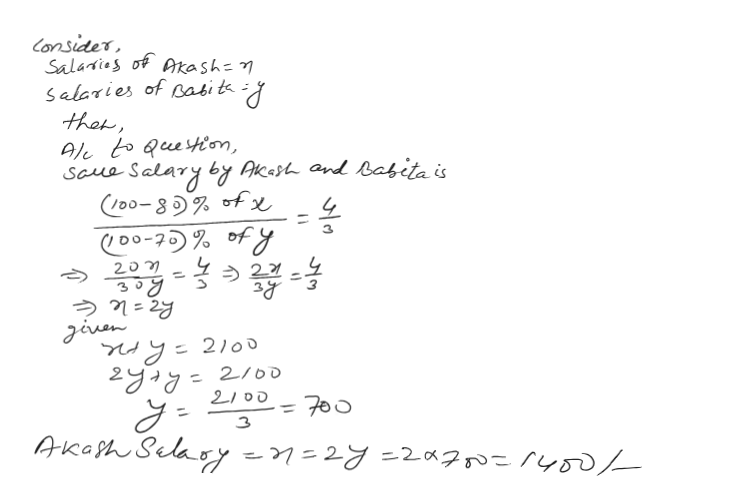 Consider,
Salaries of Akash = x
salaries of Babita = y
then,
A/c to Question,
save Salary by Akash and Babita is
(100-80)% of x / (100-70)% of y = 4/3
⇒ 20x/30y = 4/3 ⇒ 2x/3y = 4/3
⇒ x = 2y
given
x+y = 2100
2y+y = 2100
y = 2100/3 = 700
Akash Salary = x = 2y = 2×700 = 1400/-